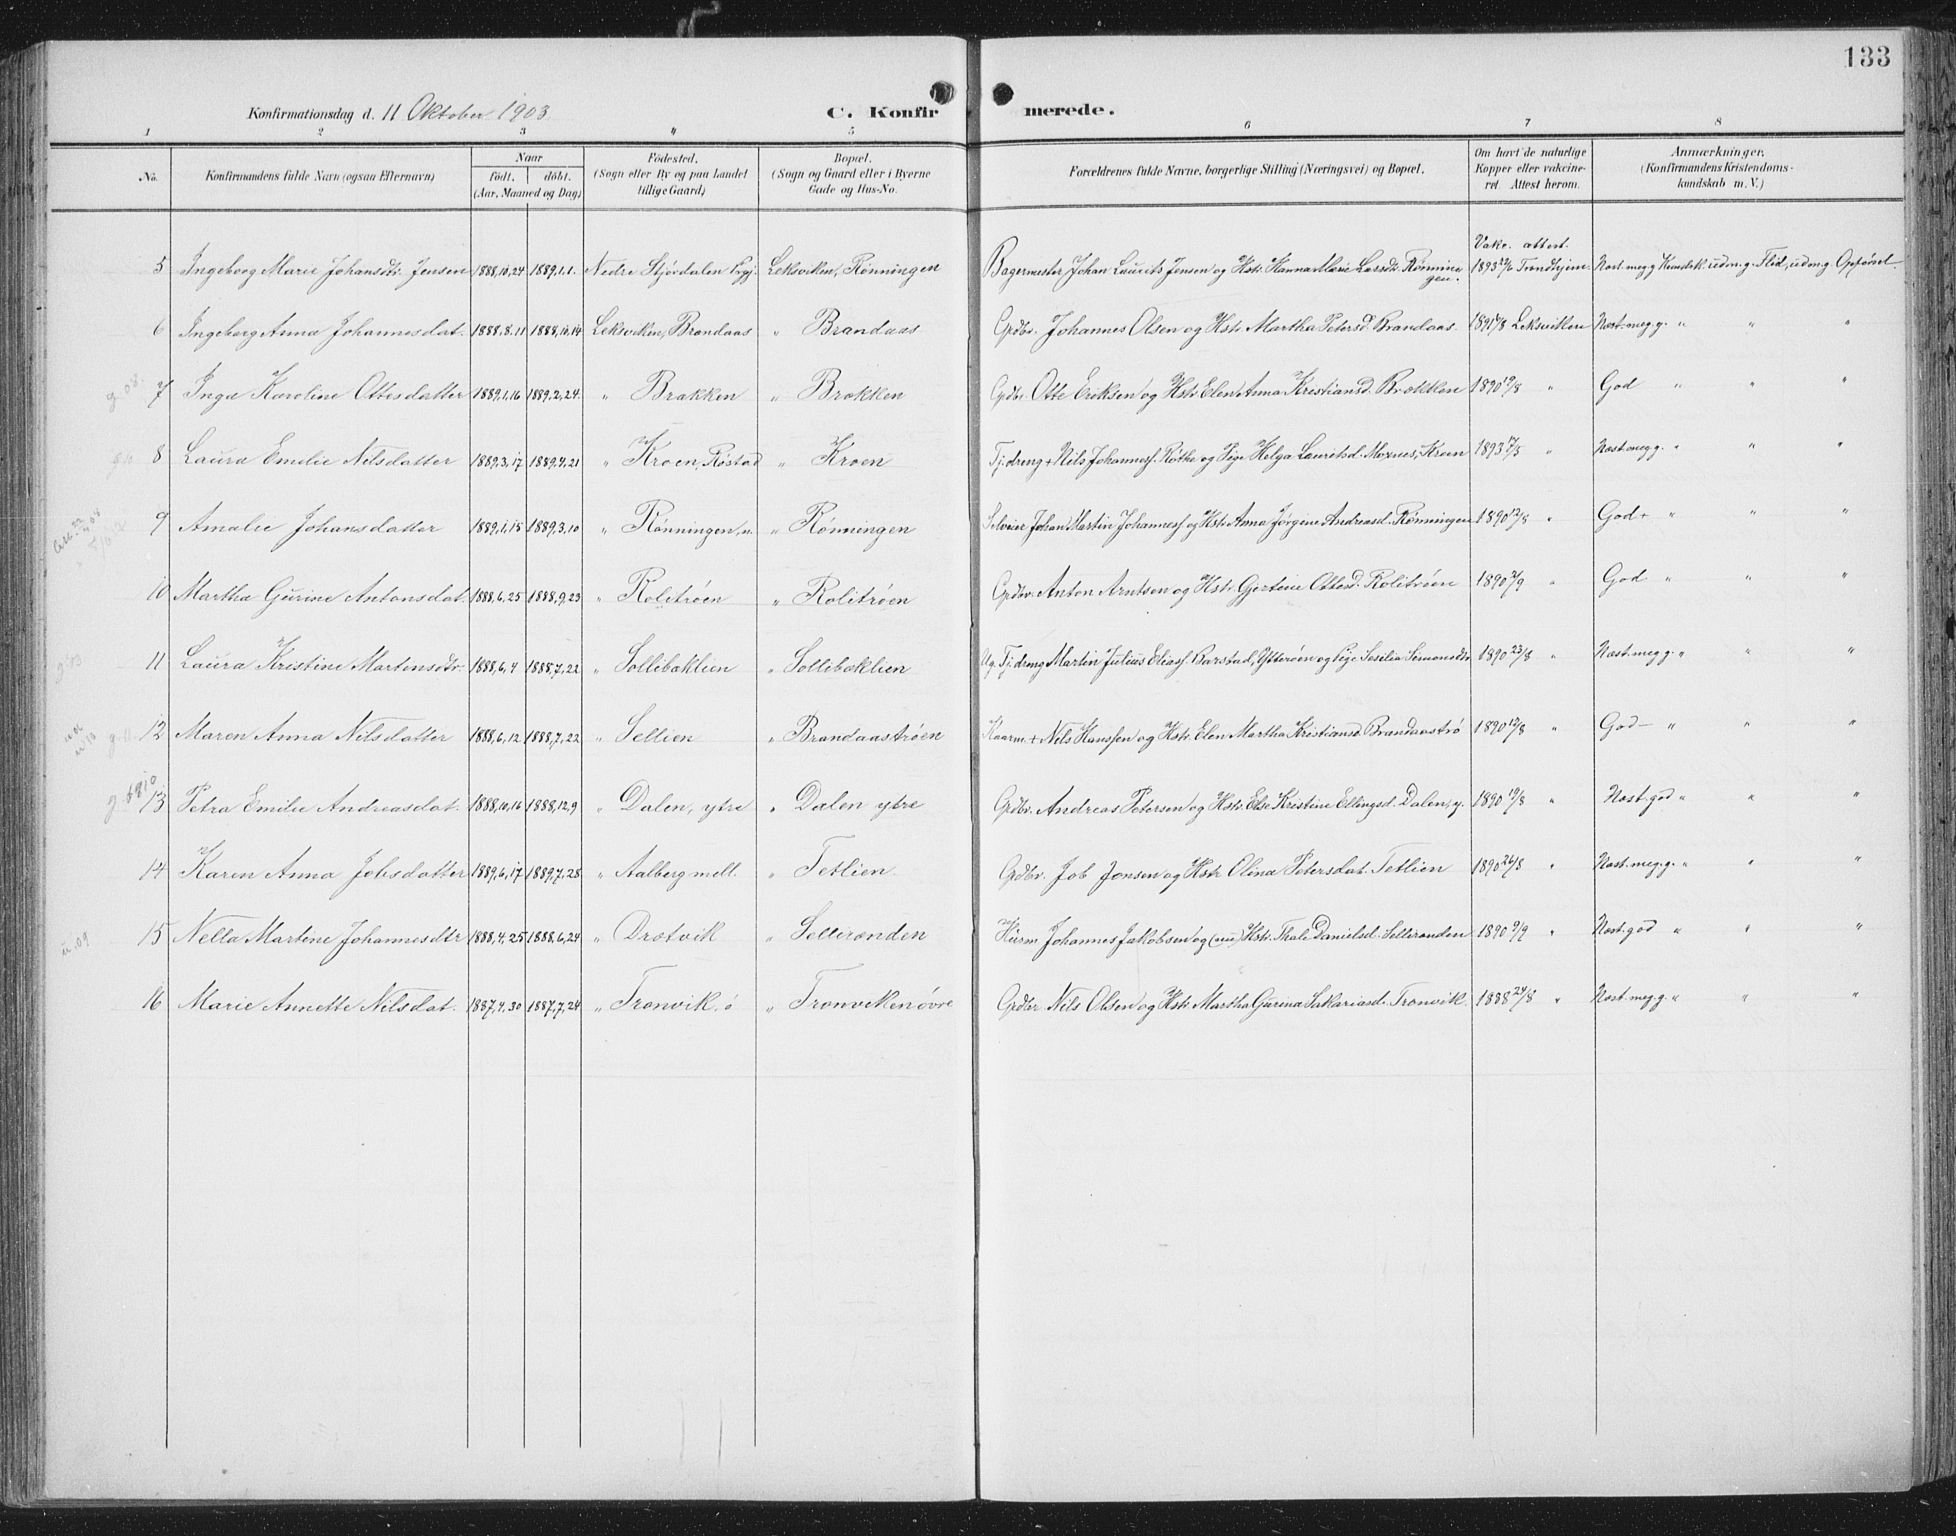 133
Konfirmationsdag d. 11 Oktober 1903
C. Konfirmerede.
1 2 3 " 5 6 7 8
No.
Konfirmandens fulde Navn (ogsaa Efternavn)
Naar
født. døbt.
(Aar, Maaned og Dag)
Fødested.
(Sogn eller By og paa Landet
tillige Gaard)
Bopæl.
(Sogn og Gaard eller i Byerne
Gade og Hus-No.
Forældrenes fulde Navne, borgerlige Stilling (Næringsvei) og Bopæl.
Om havt de naturlige
Kopper eller vakcine-
ret. Attest herom.
Anmærkninger.
(Konfirmandens Kristendoms-
kundskab m. V.)
Vakc. attest.
5 Ingeborg Marie Johansdtr. Jensen 1888,10,24 1889.1.1. Nedre Stjørdalen Prgj. Leksviken, Rønningen Bagermester Johan Laurits Jensen og Hstr. Hanna Marie Larsdt. Rønningen. 1893 Trndhjem Næst. meg. g. Kundsk. udm. g. Flid, udm. g. Opførsel.
6 Ingeborg Anna Johannesdat. 1888.8.11 1888,10,14 Leksviken, Brandaas " Brandaas Grdbr. Johannes Olsen og Hstr. Martha Petersd. Brandaas. Leksviken Næst. meg. g. " " "
g. 08.
7 Inga Karoline Ottesdatter 1889.1.16 1889.2.24. " Brakken " Brakken Grdbr. Otte Eriksen og Hstr. Elen Anna Kristiansd. Brakken 1890 19/8 " God " " "
8 Laura Emilie Nilsdatter 1889.3.17 1889.4.21 " Kroen, Røstad " Kroen Tj.dreng + Nils Johannesf. Rothe og Pige Helga Lauritsd. Moxnes, Kroen 1893 17/5 " Næst. meg. g. " " "
9 Amalie Johansdatter 1889.1.15 1889.3.10 " Rønningen, n. " Rønningen Selveier Johan Martin Johannesf. og Hstr. Anna Jørgine Andreasd. Rønningen 1890 12/8 " God+ " " "
10 Martha Gurine Antonsdat. 1888.6.25 1888.9.23 " Rolitrøen " Rolitrøen Grdbr. Anton Arntsen og Hstr. Gjertine Ottesd. Rolitrøen 1890 2/9 " God " " "
g. 13
11 Laura Kristine Martensdtr. 1888.6.4 1888.7.22 " Sollibaklien " Sollibaklien Ug. Tj.dreng Martin Julius Eliasf. Barstad, Ytterøen og Pige Sesilia Simonsdtr 1890 23/8 " Næst. meg. g. " " "
g. 11.
12 Maren Anna Nilsdatter 1888.6.12 1888.7.22 " Sellien " Brandaastrøen Kaarm. + Nils Hansen og Hstr. Elen Martha Kristiansd. Brandaastrø 1890 12/8 " God— " " "
13 Petra Emilie Andreasdat. 1888.10.16 1888.12.9 " Dalen, ytre " Dalen ytre Grdbr. Andreas Petersen og Hstr. Else Kristine Ellingsd. Dalen, y. 1890 19/8 " Næst. god " " "
14 Karen Anna Jobsdatter 1889.6.17 1889.7.28 " Aalberg mell. " Tetlien Grdbr. Job Jonsen og Hstr. Olina Petersdat. Tetlien 1890 26/8 " Næst. meg. g. " " "
u. 09
15 Nella Martine Johannesdtr 1888.4.25 1888.6.24 " Drotvik " Selliranden Husm. Johannes Jakobsen og (nu) Hstr. Thale Danielsd. Selliranden 1890 9/9 " Næst. god " " "
16 Marie Annette Nilsdat. 1887.4.30 1887.7.24 " Tronvik. ö " Tronviken övre Grdbr Nils Olsen og Hstr. Martha Gurina Sakariasd. Tronvik. 1888 24/8 " Næst. meg. g. " " "